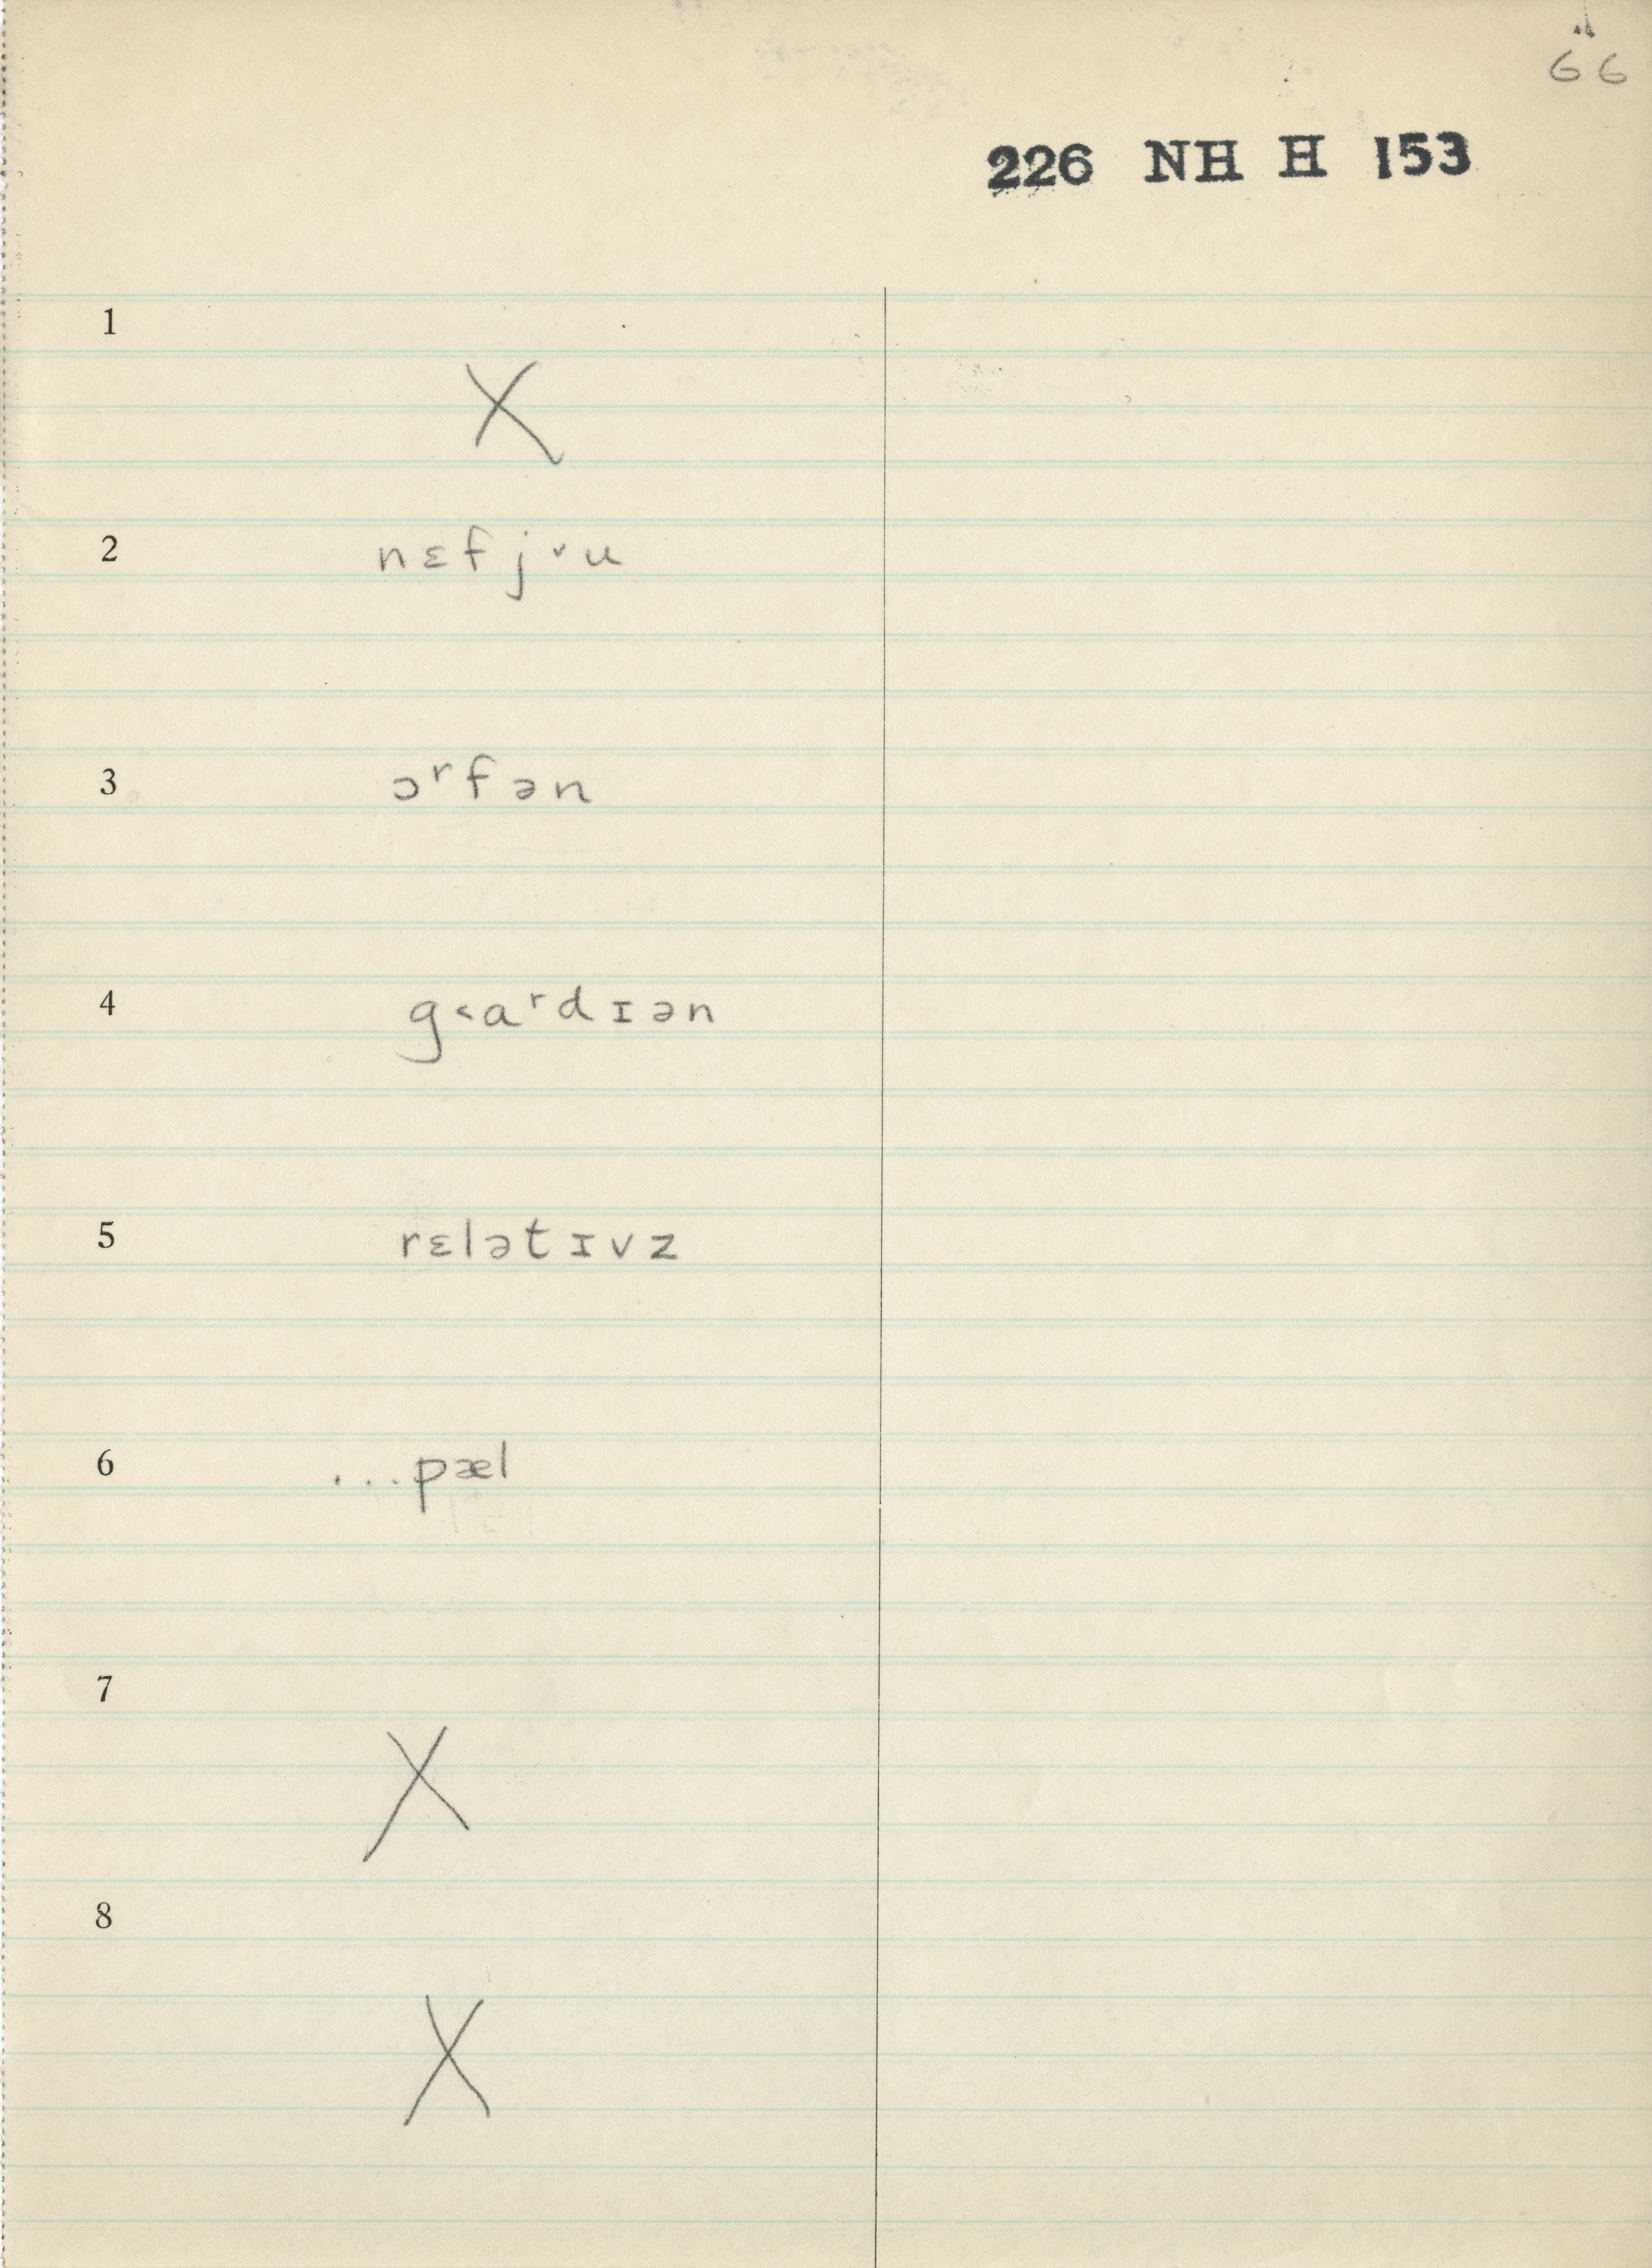 66
226 NH H 153
1
X
2 nɛfj˅u
3 ɔʳfən
4 g˂aʳdɪən
5 rɛlətɪvz
6 ...pæl
7
X
8
X